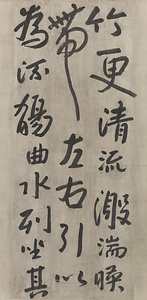 竹更清流激湍暎
帶左右引以
為流觴曲水列坐其